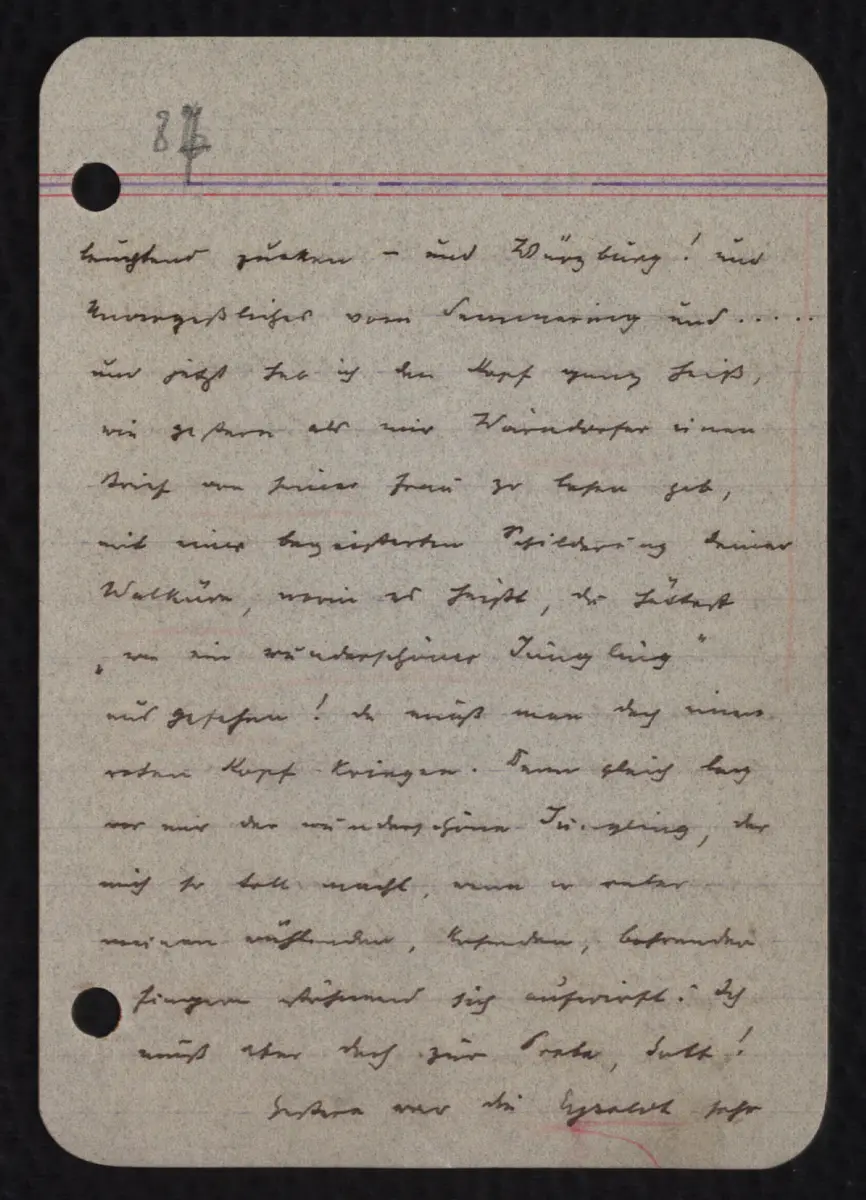 87
leuchtend zucken – und Würzburg! und
Unvergeßliches vom Semmering und.....
und jetzt hab ich den Kopf ganz heiß,
wie gestern als mir Wärndorfer einen
Brief von seiner Frau zu lesen gab,
mit einer begeisterten Schilderung deiner
Walküre, worin es heißt, du hättest
„wie ein wunderschöner Jüngling"
ausgesehen! da muß man doch einen
roten Kopf kriegen. Denn gleich lag
vor mir der wunderschöne Jüngling, der
mich so toll macht, wenn er unter
meinen wühlenden, kosenden, bohrenden
Fingern stöhnend sich aufwirft! Ich
muß aber doch zur Probe, Halt!
Gestern war die Eysoldt sehr